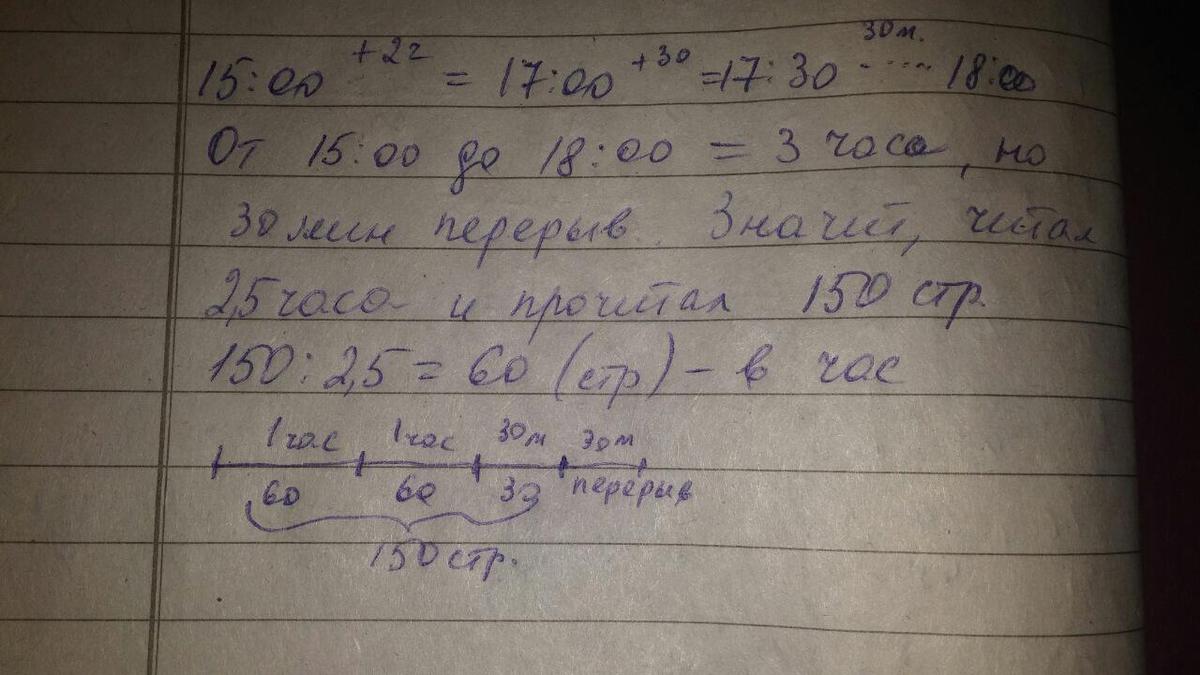 15:00 +2г = 17:00 +30 =17:30 30м. ..... 18:00
От 15:00 до 18:00 = 3 часа, но
30 мин перерыв. Значит, читал
2,5 часа и прочитал 150 стр.
150:2,5 = 60 (стр) - в час
1 час 1 час 30м 30м
60 60 30 перерыв
150 стр.